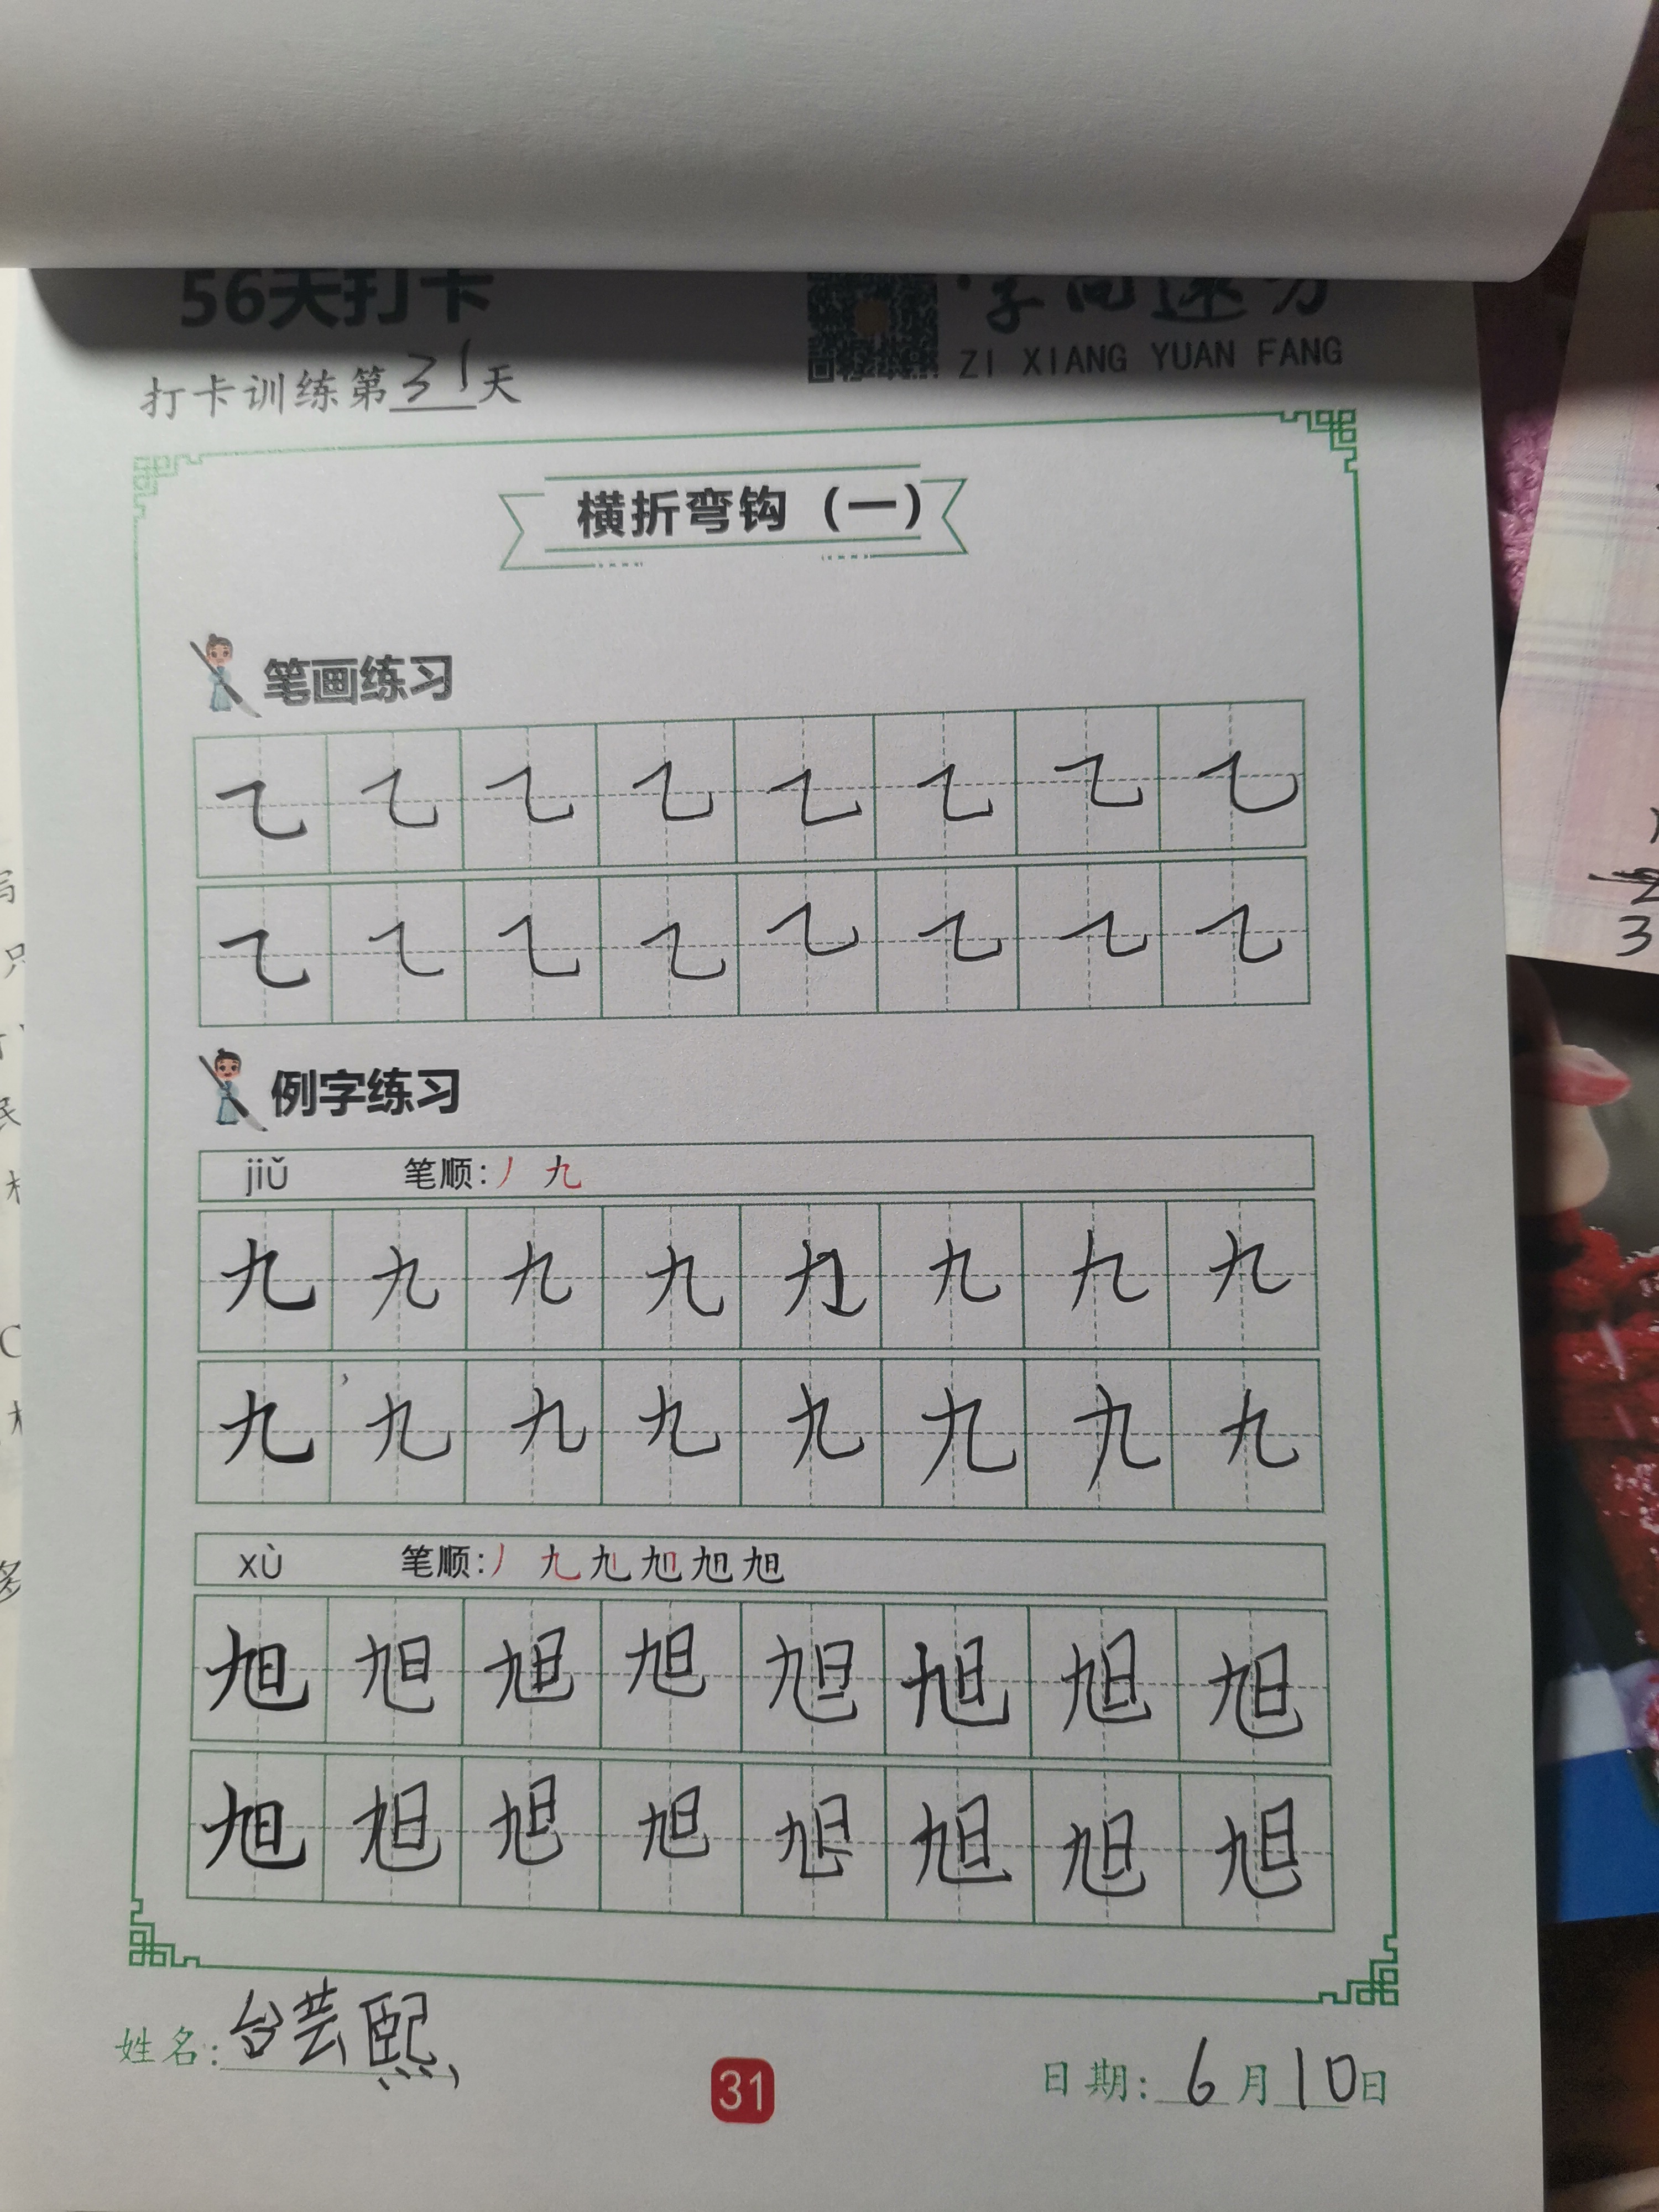 56天打卡
字向远方
ZI XIANG YUAN FANG
打卡训练第31天
横折弯钩（一）
笔画练习
㇈ ㇈ ㇈ ㇈ ㇈ ㇈ ㇈ ㇈
㇈ ㇈ ㇈ ㇈ ㇈ ㇈ ㇈ ㇈
例字练习
jiǔ 笔顺:丿 九
九 九 九 九 九 九 九 九
九 九 九 九 九 九 九 九
xù 笔顺:丿 九 旭 旭 旭 旭
旭 旭 旭 旭 旭 旭 旭 旭
旭 旭 旭 旭 旭 旭 旭 旭
姓名:台芸熙
31
日期:6月10日